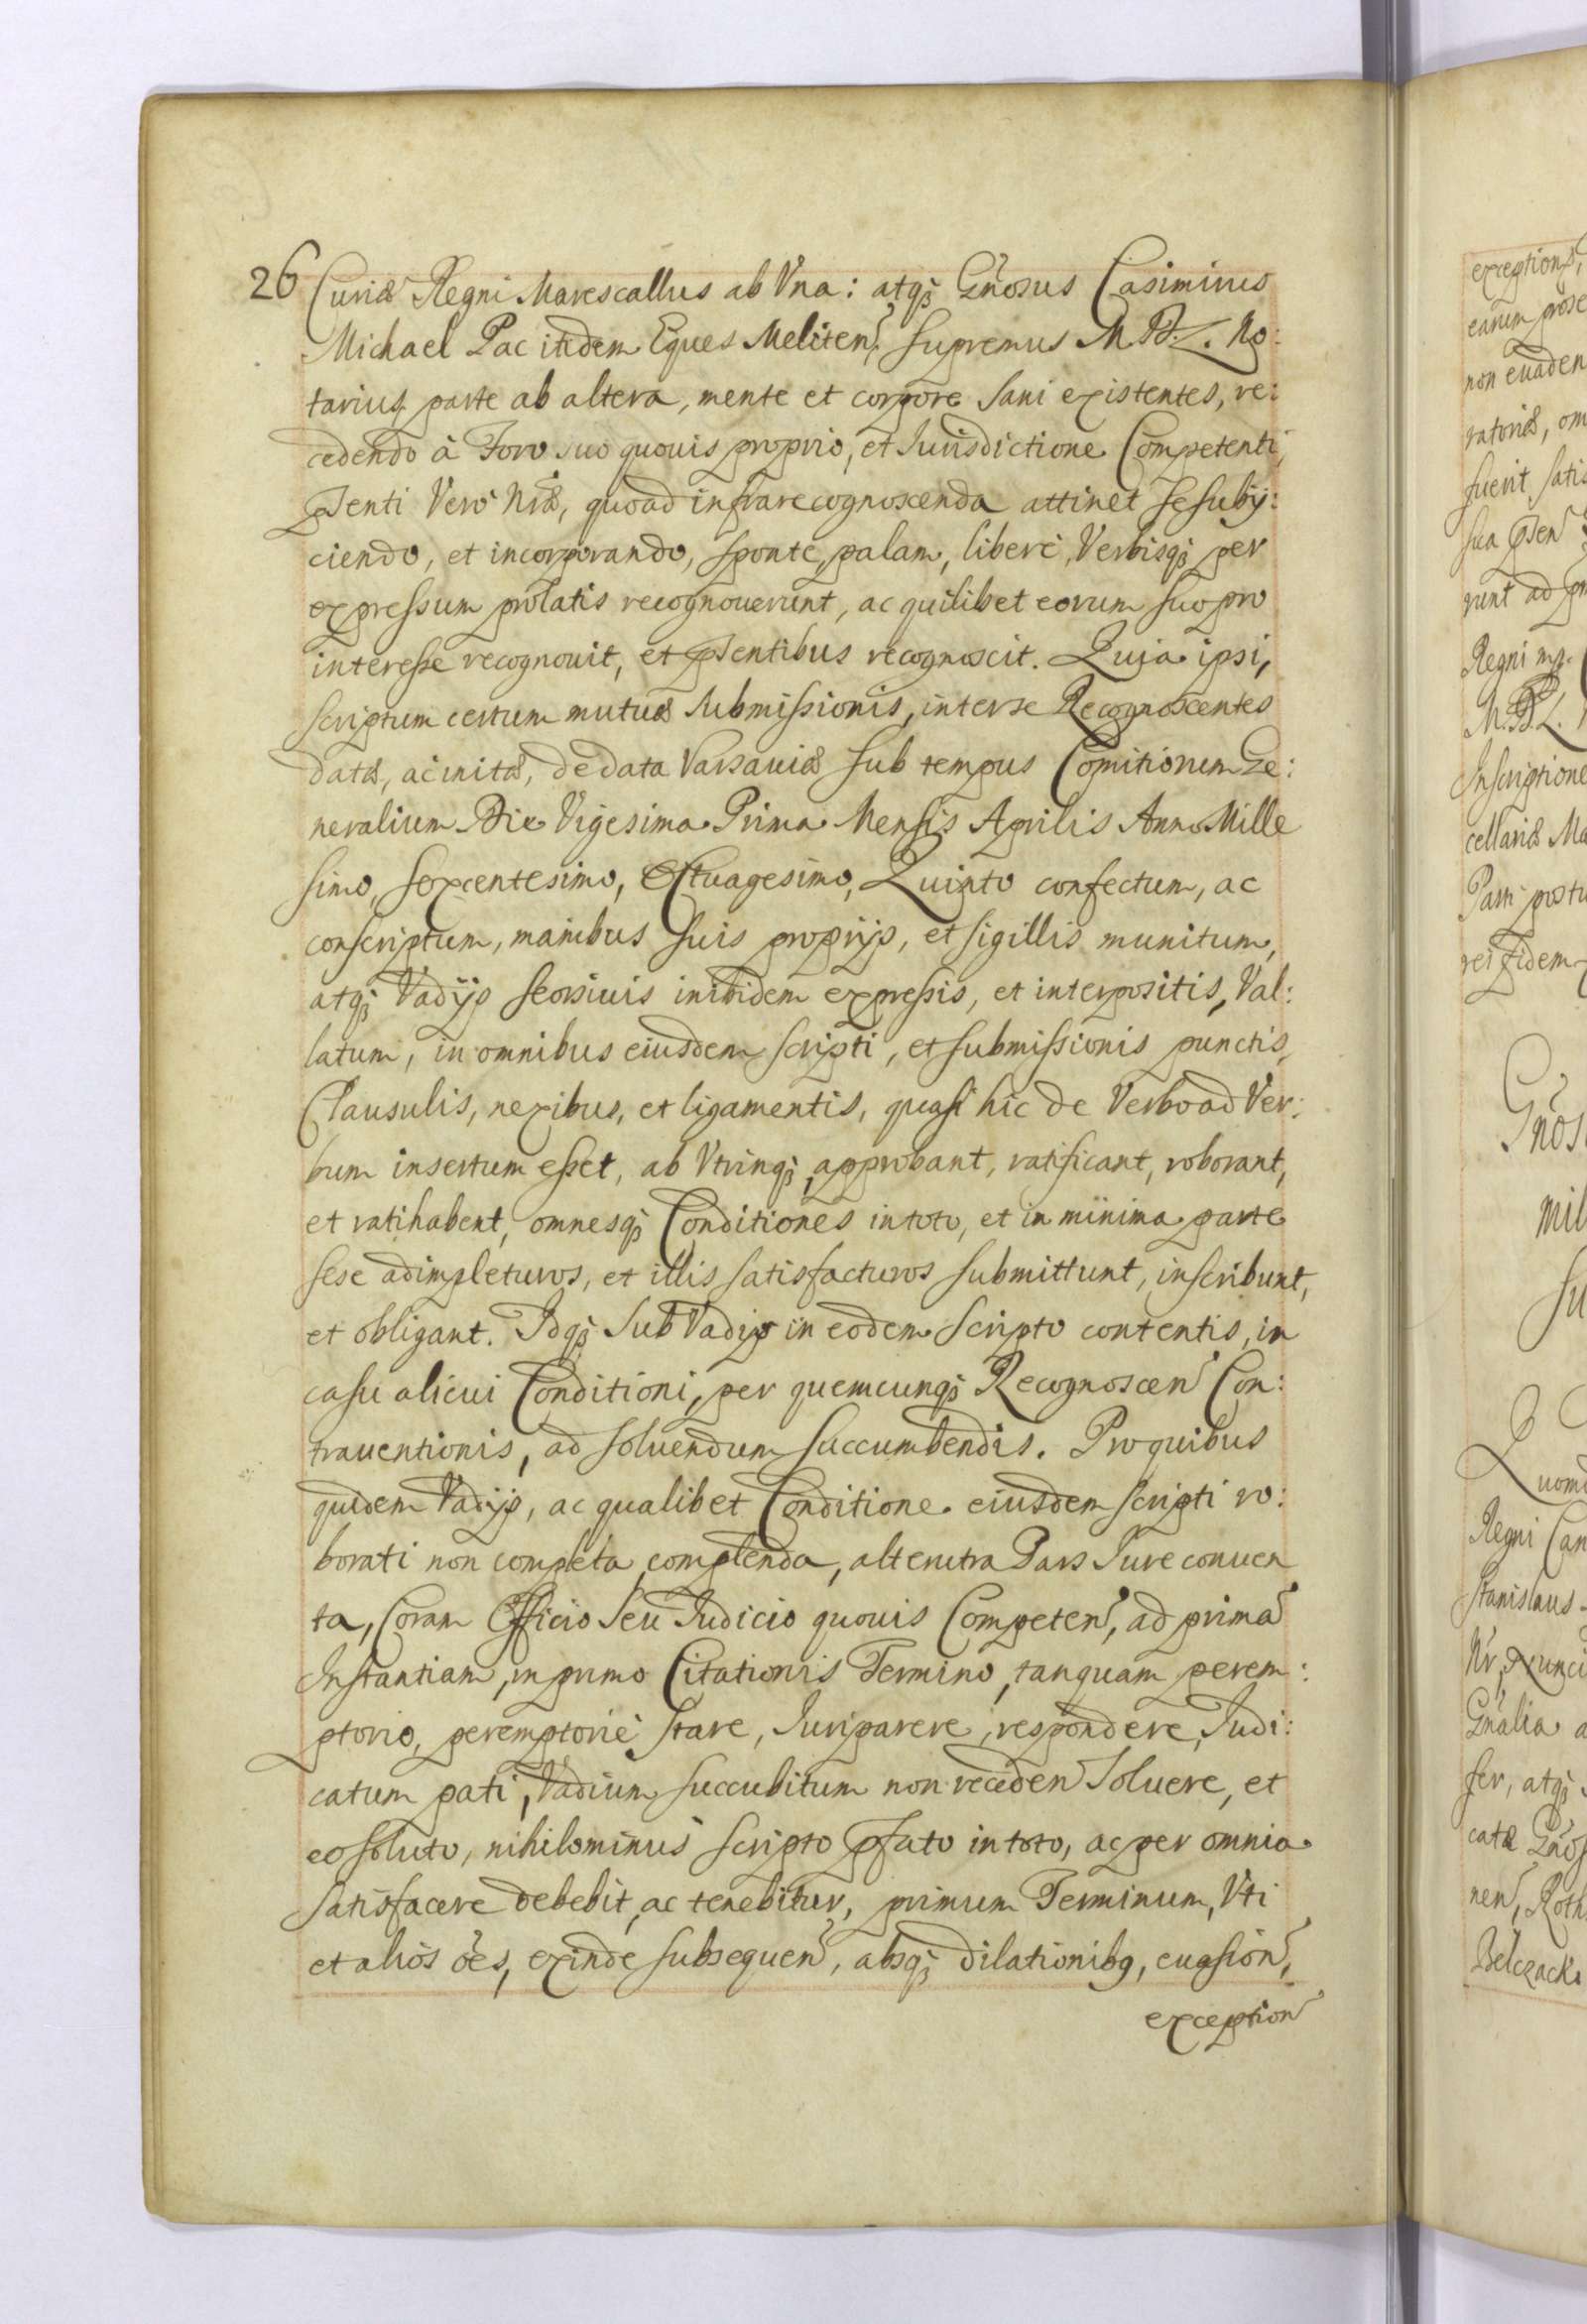 26
Curiæ Regni Marescallus ab Vna: atq; Gñosus Casimirus
Michael Pac itidem Eques Meliteñ, Supremus M. D. L. No:
tarius, parte ab altera, mente et corpore Sani existentes, re:
cedendo à Foro suo quouis proprio, et Jurisdictione Competenti,
Pñti Verò Nræ, quoad infra recognoscenda attinet Se subij:
ciendo, et incorporando, sponte, palam, liberè, Verbisq; per
expressum prolatis recognouerunt, ac quilibet eorum suo pro
interesse recognouit, et pñtibus recognoscit. Quia ipsi,
scriptum certum mutuæ Submissionis, inter se Recognoscentes
datæ, ac initæ, de data Varsauiæ sub tempus Comitiorum Ge:
neralium Die Vigesima Prima Mensis Aprilis Anno Mille
simo, Sexcentesimo, Octuagesimo, Quinto confectum, ac
conscriptum, manibus suis proprijs, et sigillis munitum,
atq; Vadijs seorsiuis inibidem expressis, et interpositis, Val:
latum, in omnibus eiusdem scripti, et submissionis punctis,
Clausulis, nexibus, et ligamentis, quasi hic de Verbo ad Ver:
bum insertum esset, ab Vtrinq; approbant, ratificant, roborant,
et ratihabent, omnesq; Conditiones in toto, et in minima parte
sese adimpleturos, et illis satisfacturos submittunt, inscribunt,
et obligant. Idq; Sub Vadijs in eodem Scripto contentis, in
casu alicui Conditioni, per quemcunq; Recognosceñ Con:
trauentionis, ad soluendum succumbendis. Pro quibus
quidem Vadijs, ac qualibet Conditione eiusdem scripti ro:
borati non completa complenda, alterutra Pars Jure conuen
ta, Coram Officio seu Judicio quouis Competeñ, ad primã
Instantiam, in primo Citationis Termino, tanquam perem:
ptorio, peremptoriè stare, Juri parere, respondere, Judi:
catum pati, Vadium succubitum non recedeñ Soluere, et
eo soluto, nihilominus scripto pfato in toto, ac per omnia
satisfacere debebit, ac tenebitur, primum Terminum, Vti
et alios oẽs, exinde subsequeñ, absq; dilationibq, euasioñ,
exceptioñ